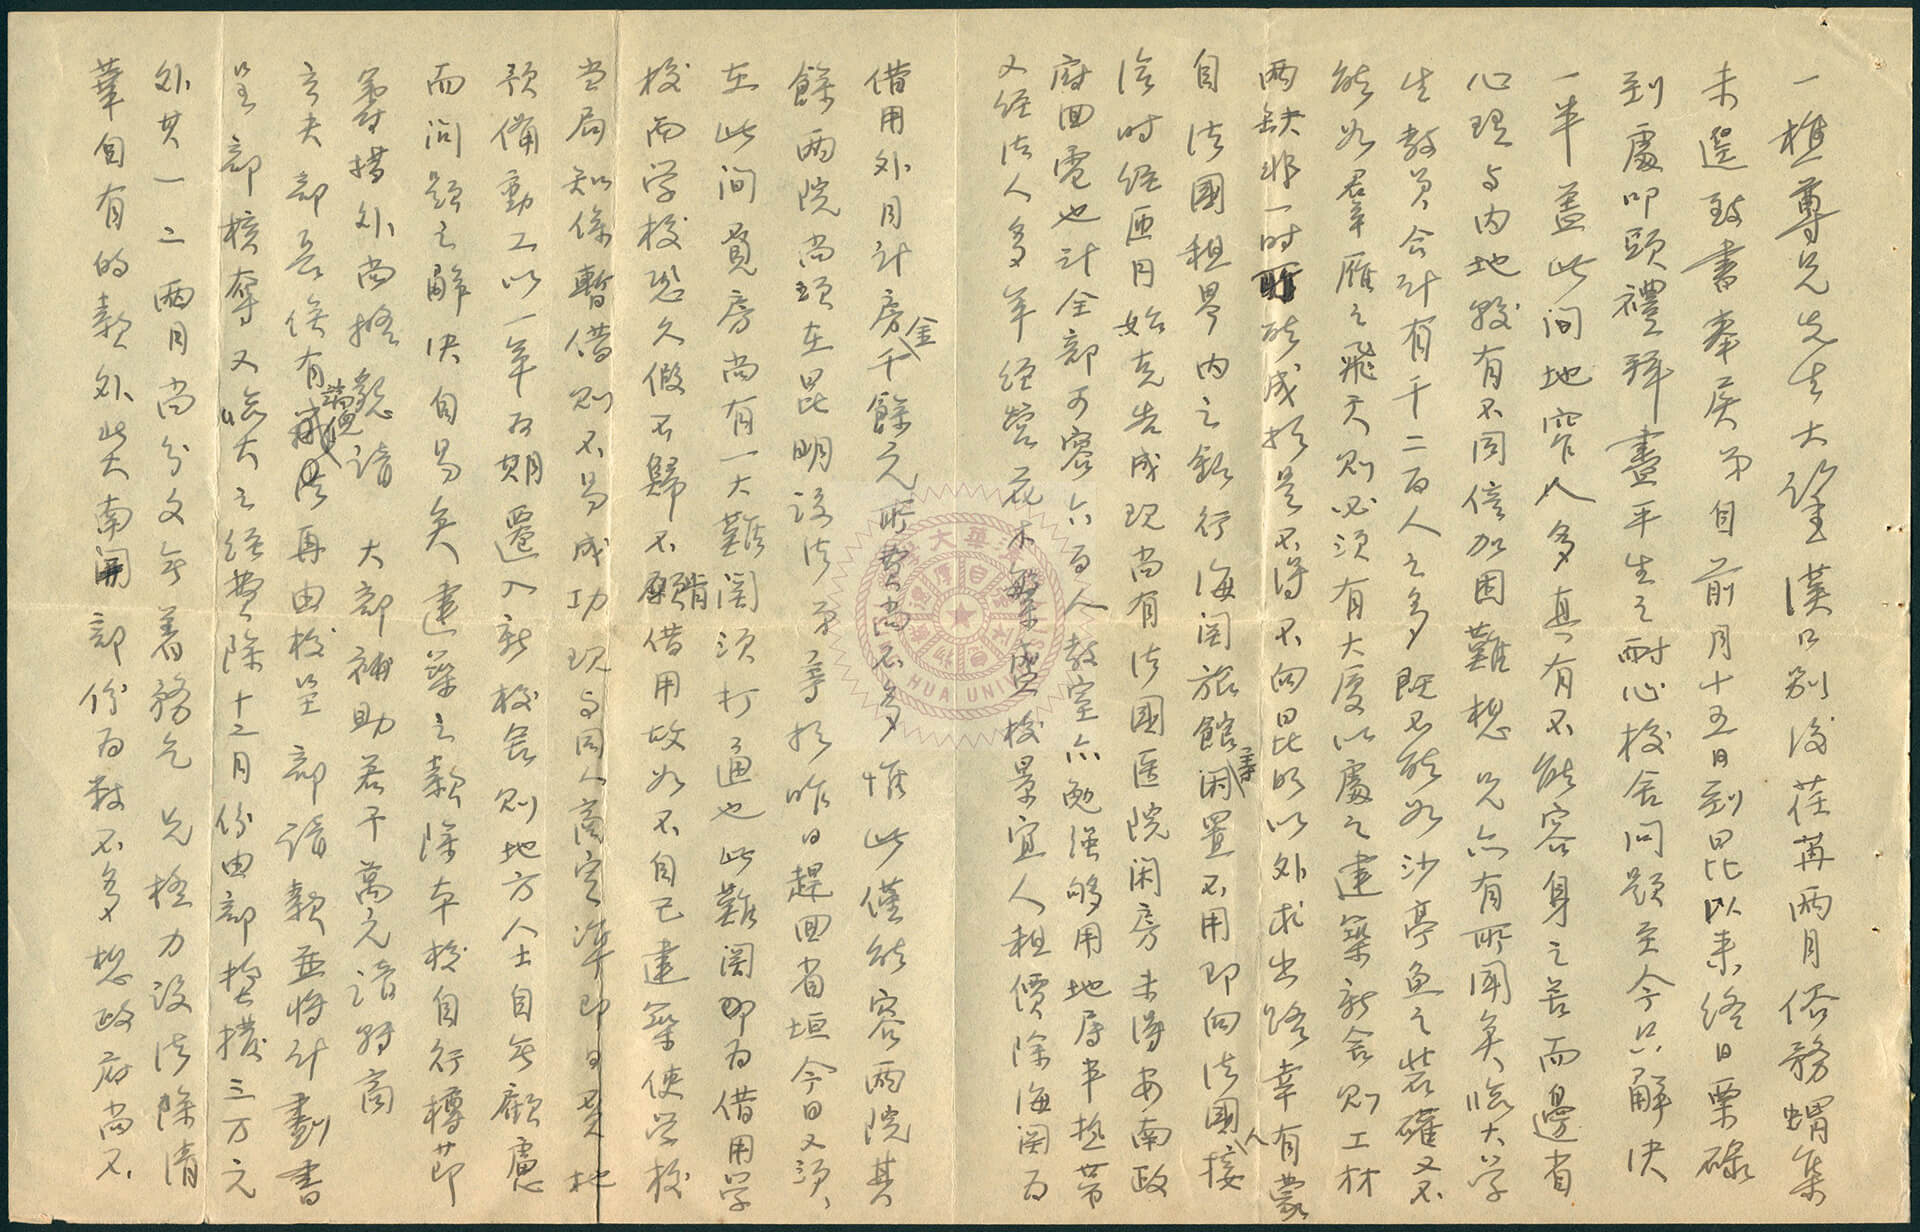 一樵尊兄先生大鑒漢口別後荏苒兩月俗務蝟集
未遑致書奉候弟自前月十五日到昆以来終日栗碌
到處叩頭禮拜盡平生之耐心校舍问題至今只解决
一半蓋此间地窄人多真有不能容身之苦而邊省
心理与内地較有不同倍加困難想兄亦有所闻矣臨大学
生教员合计有千二百人之多既不能如沙亭魚之装罐又不
能如羣雁之飛天则必须有大厦以處之建築新舍则工材
两缺非一时所能成於是不得不向昆明以外求出路幸有蒙
自法國租界内之銀行海関旅館等闲置不用即向法國人接
洽时经匝月始克告成现尚有法國医院闲房未得安南政
府回電也计全部可容六百人教室亦勉强够用地居半熱带
又经法人多年经营花木繁盛校景宜人租價除海関為
借用外月计房金千餘元所费尚不多惟此僅能容两院其
餘两院尚须在昆明设法弟等於昨日趕回省垣今日又须
在此间覓房尚有一大難関须打通也此難関即为借用学
校而学校恐久假不歸不肯借用故如不自己建築使学校
当局知係暫借则不易成功现与同人商定準即日買地
预備動工以一年为期遷入新校舍则地方人士自無顧慮
而问题之解决自易矣建築之款除本校自行撙节
籌措外尚擬懇请 大部補助若干萬元请轉商
立夫部長俟有端倪再由校呈 部请款並将计劃書
呈部核奪又臨大之经费除十二月份由部撥三万元
外其一二两月尚分文無着務乞 兄極力设法除清
華自有的款外北大南開部份为数不多想政府尚不